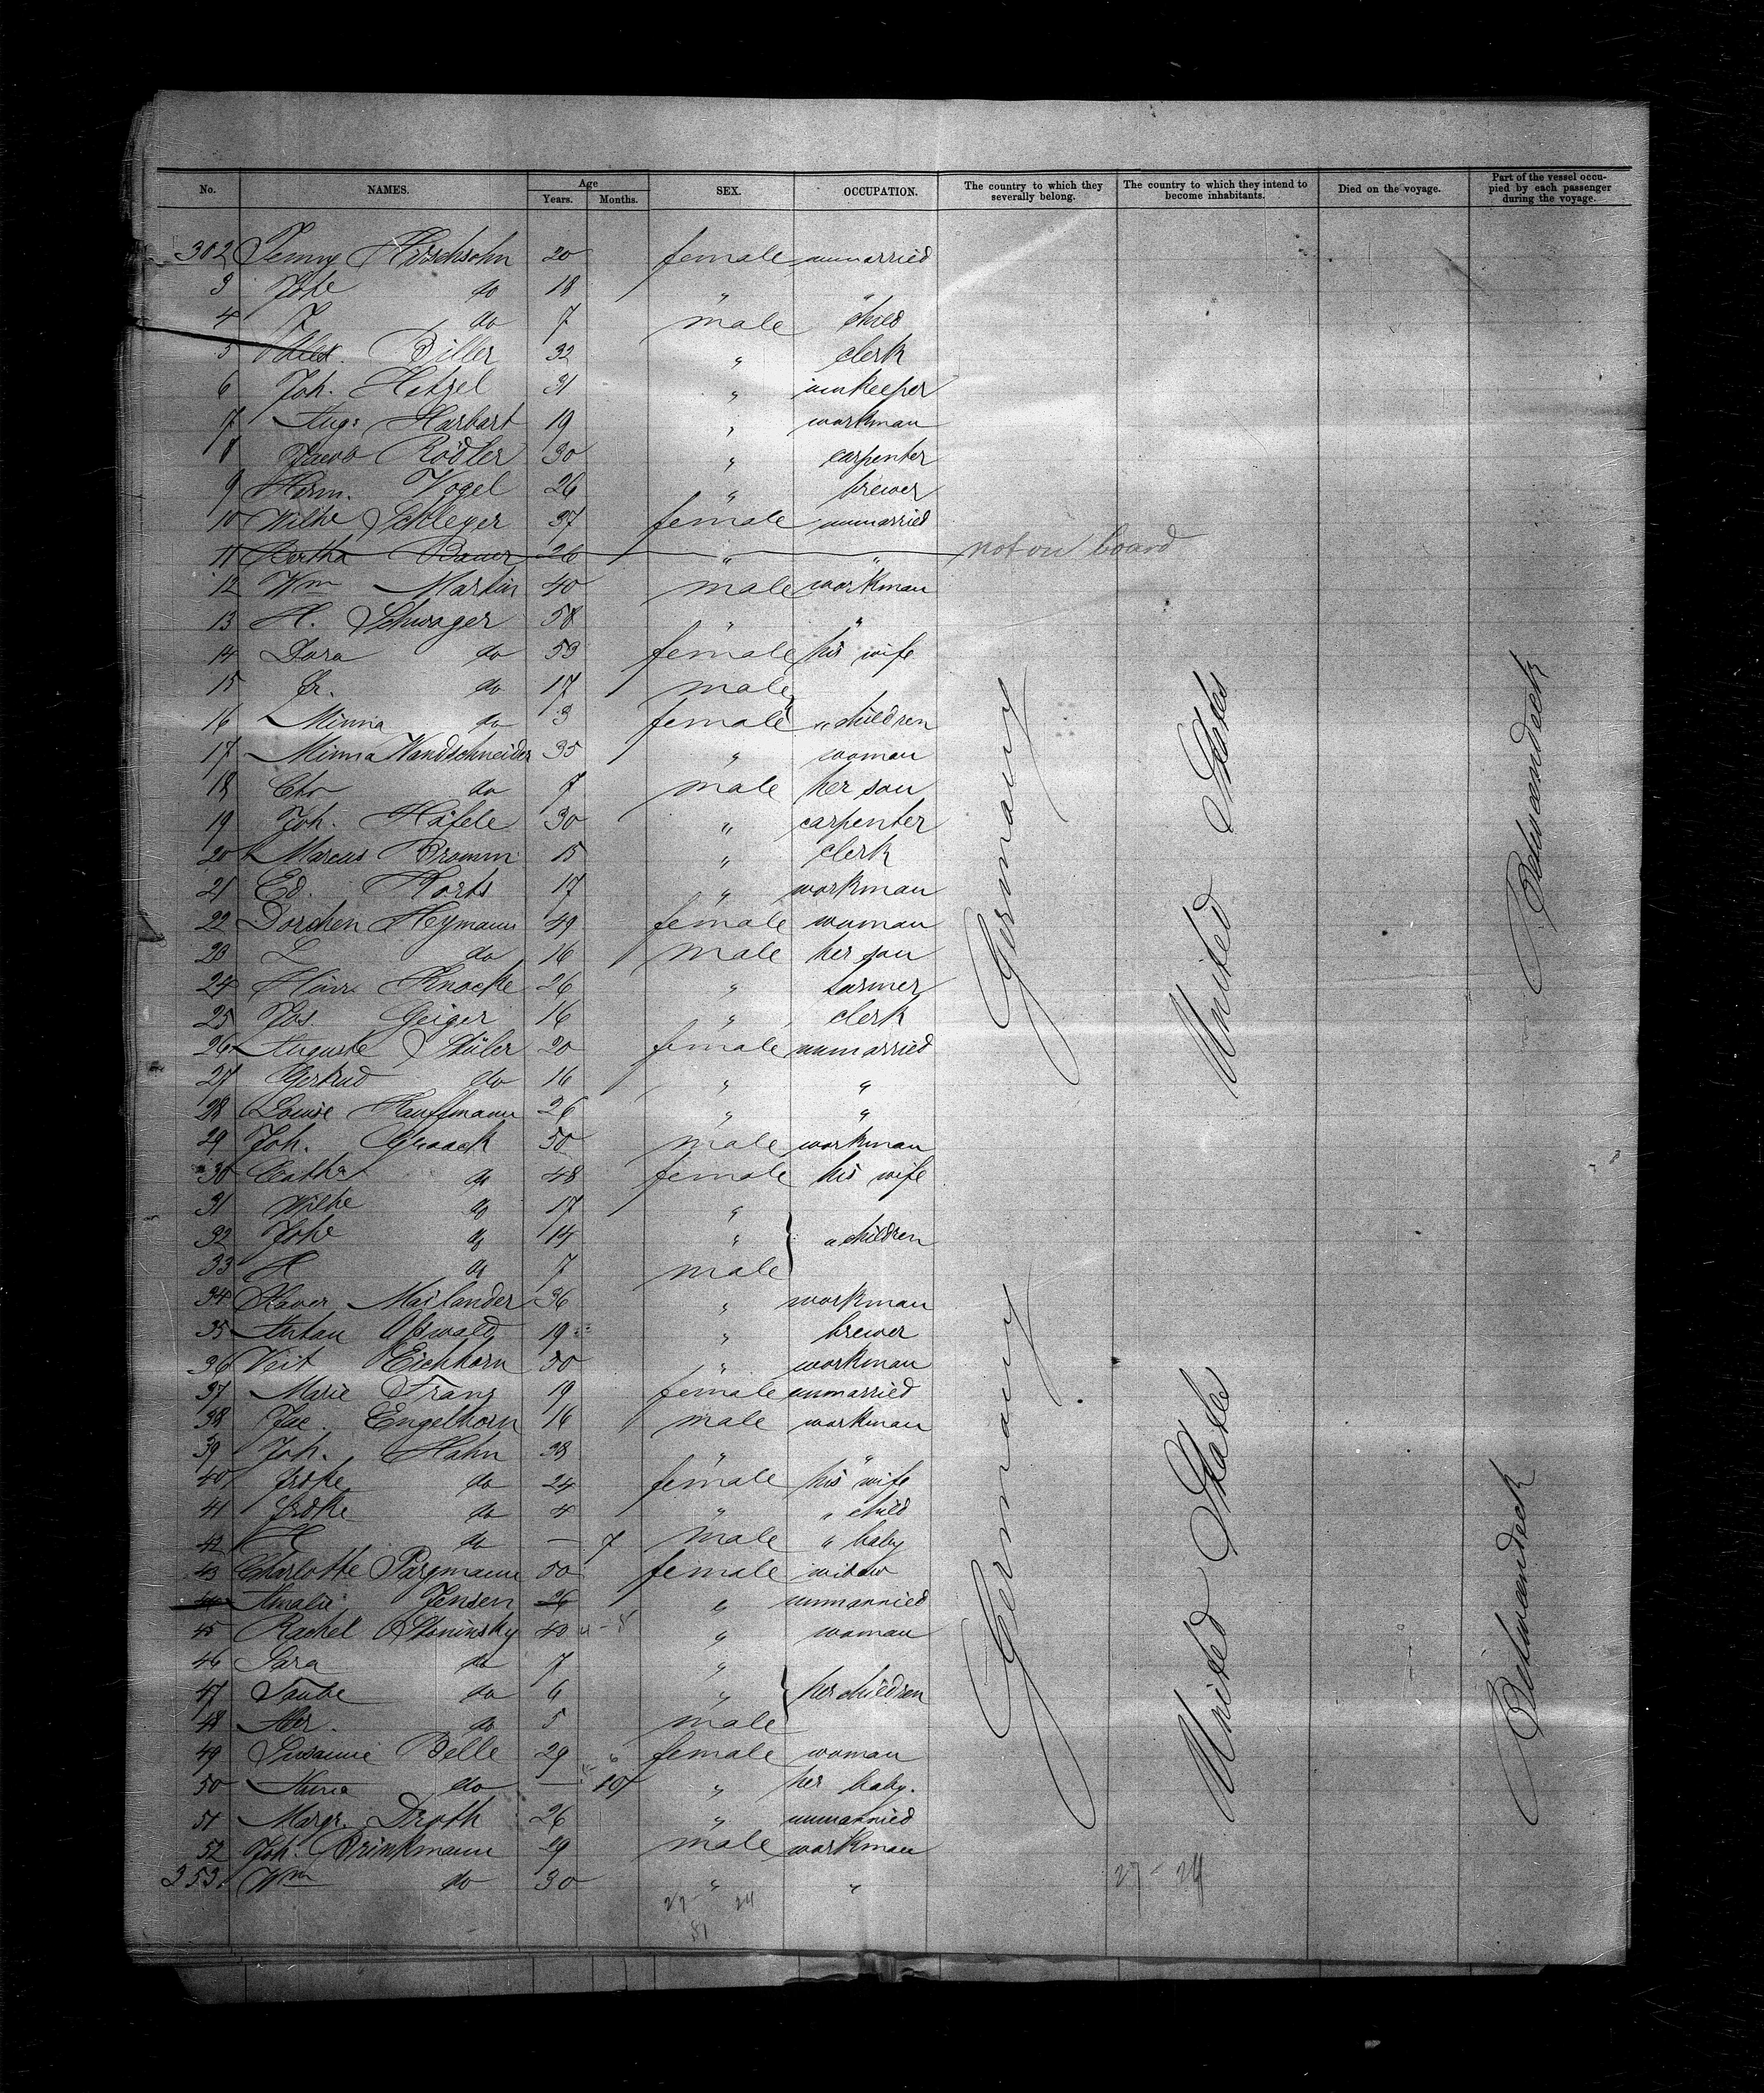 No. NAMES. Age Years. Months. SEX. OCCUPATION. The country to which they severally belong. The country to which they intend to become inhabitants. Died on the voyage. Part of the vessel occupied by each passenger during the voyage.
302 Jenny Hirschsohn 20 female unmarried
3 Johe do 18 " "
4 J do 7 male child
5 Alex. Biller 32 " clerk
6 Joh. Hetzel 31 " innkeeper
7 Aug: Harbart 19 " workman
8 Jacob Rödler 30 " carpenter
9 Herm. Vogel 26 " brewer
10 Wilhe Schleyer 37 female unmarried
11 Bertha Bauer 26 " " not on board
12 Wm Martin 40 male workman
13 H. Schwager 58 " "
14 Dora do 53 female his wife
15 Fr. do 17 male
16 Minna do 3 female " children
17 Minna Wandschneider 35 " woman
18 do 7 male her son
19 Joh. Häfele 30 " carpenter
20 Marcus Bromm 15 " clerk
21 Ed. Korts 17 " workman
22 Dorchen Heymann 49 female woman
23 L do 16 male her son
24 Hinr. Knocke 26 " farmer
25 Jos. Geiger 16 " clerk
26 Auguste Stüler 20 female unmarried
27 Gertrud do 16 " "
28 Louise Kauffmann 26 " "
29 Joh. Graack 50 male workman
30 Cathr do 48 female his wife
31 Wilhe do 17 "
32 Johe do 14 " " children
33 H do 7 male
34 Xaver Mailander 36 " workman
35 Anton Oswald 19 " brewer
36 Veit Eichhorn 50 " workman
37 Marie Franz 19 female unmarried
38 Jac. Engelhorn 16 male workman
39 Joh. Hahn 28 " "
40 Frdke do 24 female his wife
41 Frdke do 4 " " child
42 do — 7 male " baby
43 Charlotte Pärgmann 50 female widow
44 Amalie Jensen 26 " unmarried
45 Rachel Sloninsky 40 " woman
46 Sara do 7 "
47 Taube do 6 " her children
48 Abr. do 5 male
49 Susanne Belle 29 female woman
50 Anna do — 10 " her baby.
51 Margr. Droth 26 " unmarried
52 Joh. Brinkmann 29 male workman
353. Wm do 30 " "
Germany United States Betweendeck
Germany United States Betweendeck
27 - 24
27 - 24
51